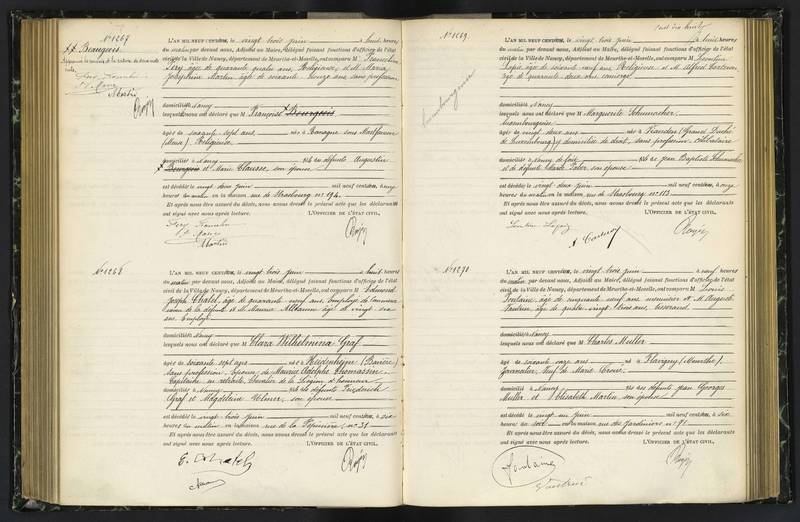 N° 1267
Beaugeois
L'AN MIL NEUF CENT DIX, le vingt trois juin à huit heures
du matin par devant nous, Adjoint au Maire, délégué faisant fonctions d'officier de l'état
civil de la Ville de Nancy, département de Meurthe-et-Moselle, ont comparu M
âgé de quarante quatre ans, Religieuse, et M. Maria
Joséphine Martin âgée de soixante ans sans profession
domiciliés à Nancy
lesquels nous ont déclaré que M Françoise Bourgeois
âgée de soixante sept ans née à
(Meuse), Religieuse
domiciliée à Nancy fille de défunts Augustin
Bourgeois et Marie Clausse, son épouse
est décédée le vingt deux juin mil neuf cent dix, à onze
heures du matin en sa maison rue de Strasbourg n° 194
Et après nous être assuré du décès, nous avons dressé le présent acte que les déclarants
ont signé avec nous après lecture. L'OFFICIER DE L'ÉTAT CIVIL,
Martin
N° 1268
L'AN MIL NEUF CENT DIX, le vingt trois juin à huit heures
du matin par devant nous, Adjoint au Maire, délégué faisant fonctions d'officier de l'état
civil de la Ville de Nancy, département de Meurthe-et-Moselle, ont comparu M Edmond
Joseph Chatel, âgé de quarante neuf ans, Employé de commerce
voisin de la défunte et M. Maurice âgé de vingt six
ans, Employé
domiciliés à Nancy
lesquels nous ont déclaré que M Clara Wilhelmina Graf
âgée de soixante sept ans née à Heidenheim (Bavière)
sans profession, Epouse de Maurice Adolphe Thomassin
Capitaine en retraite, Chevalier de la Légion d'honneur
domiciliée à Nancy fille de défunts Friederich
Graf et Magdeleine son épouse
est décédée le vingt trois juin mil neuf cent dix, à six
heures du matin en sa maison rue de la Pépinière, n° 31
Et après nous être assuré du décès, nous avons dressé le présent acte que les déclarants
ont signé avec nous après lecture. L'OFFICIER DE L'ÉTAT CIVIL,
E. Chatel
N° 1269
Luxembourgeoise
L'AN MIL NEUF CENT DIX, le vingt trois juin à huit heures
du matin par devant nous, Adjoint au Maire, délégué faisant fonctions d'officier de l'état
civil de la Ville de Nancy, département de Meurthe-et-Moselle, ont comparu M Léontine
âgée de soixante neuf ans Religieuse et M. Alfred
âgé de quarante deux ans concierge
domiciliés à Nancy
lesquels nous ont déclaré que M Marguerite Schumacher
Luxembourgeoise
âgée de vingt deux ans née à Vianden (Grand Duché
de Luxembourg) y domiciliée de droit, sans profession, célibataire
domiciliée à Nancy de fait fille de Jean Baptiste Schumacher
et de défunte Marie son épouse
est décédée le vingt deux juin mil neuf cent dix, à onze
heures du matin en sa maison rue de Strasbourg n° 113
Et après nous être assuré du décès, nous avons dressé le présent acte que les déclarants
ont signé avec nous après lecture. L'OFFICIER DE L'ÉTAT CIVIL,
N° 1270
L'AN MIL NEUF CENT DIX, le vingt trois juin à neuf heures
du matin par devant nous, Adjoint au Maire, délégué faisant fonctions d'officier de l'état
civil de la Ville de Nancy, département de Meurthe-et-Moselle, ont comparu M Louis
Fontaine, âgé de cinquante neuf ans, menuisier et M. Auguste
âgé de quatre vingt trois ans, tisserand
domiciliés à Nancy
lesquels nous ont déclaré que M Charles Muller
âgé de soixante onze ans né à Flavigny (Meurthe)
Journalier, Veuf de Marie
domicilié à Nancy fils de défunts Jean Georges
Muller et Elisabeth Martin, son épouse
est décédé le vingt un juin mil neuf cent dix, à six
heures du soir en sa maison rue des Jardiniers n° 71
Et après nous être assuré du décès, nous avons dressé le présent acte que les déclarants
ont signé avec nous après lecture. L'OFFICIER DE L'ÉTAT CIVIL,
Fontaine